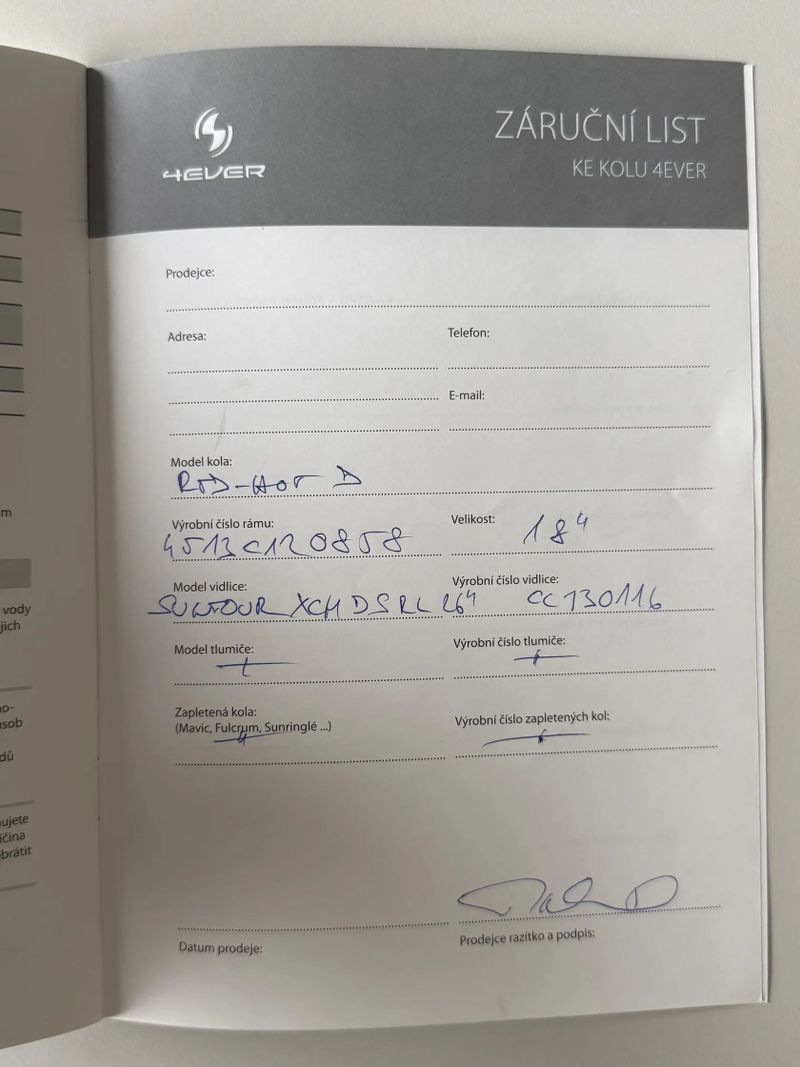 4EVER
ZÁRUČNÍ LIST
KE KOLU 4EVER
Prodejce:
Adresa:
Telefon:
E-mail:
Model kola:
RED-HOT D
Výrobní číslo rámu:
4513C120858
Velikost:
18"
Model vidlice:
SUNTOUR XCM DS RL 26"
Výrobní číslo vidlice:
CC130116
Model tlumiče:
Výrobní číslo tlumiče:
Zapletená kola:
(Mavic, Fulcrum, Sunringlé ...)
Výrobní číslo zapletených kol:
Datum prodeje:
Prodejce razítko a podpis:
m
vody
jich
no-
ůsob
dů
nujete
íčina
brátit